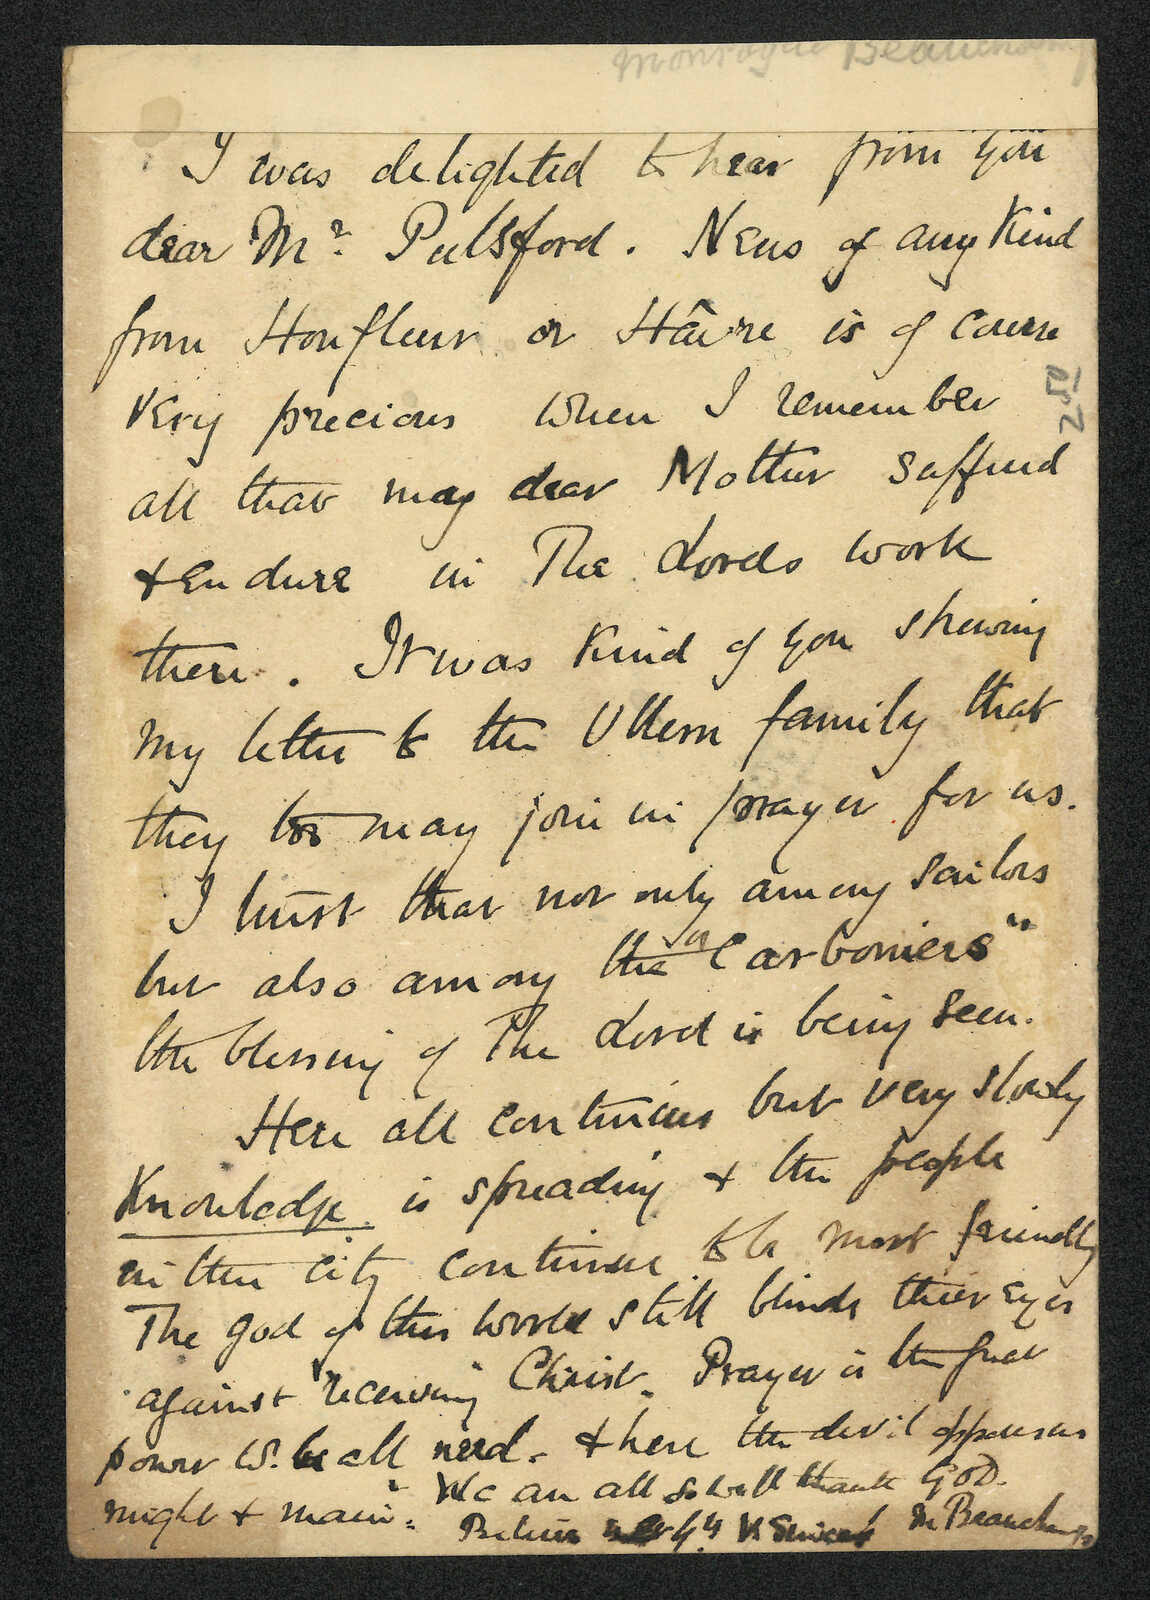 Montague Beauchamp
I was delighted to hear from you
dear Mr. Pulsford. News of any Kind
from Honfleur or Hâvre is of course
very precious when I remember
all that my dear Mother suffered
& Endure in The Lords work
there. It was Kind of you shewing
my letter to the Ullern family that
they too may join in prayer for us.
I trust that not only among sailors
but also among the "Carboniers"
the blessing of The Lord is being seen.
Here all continues but very slowly
Knowledge is spreading & the people
in the city continue to be most friendly
The god of this world still blinds thier Eyes
against receiving Christ. Prayer is the great
power we all need. & here the devil opposes us
might & main. We are all so well thank GOD.
Believe me yrs V. Sincerely M Beauchamp